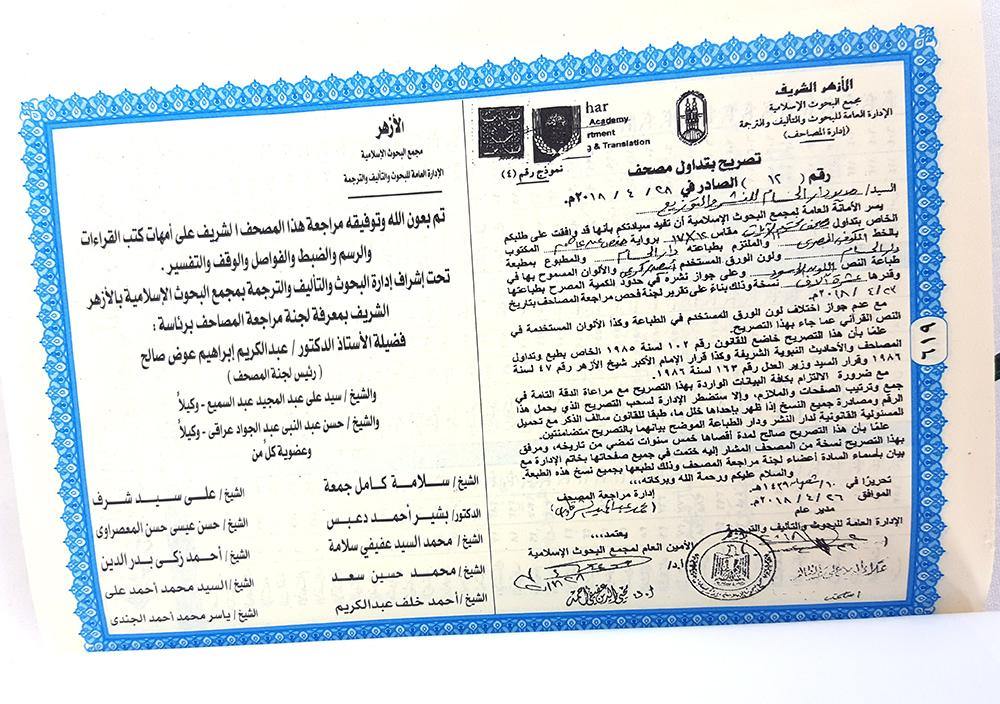 الأزهر الشريف
مجمع البحوث الإسلامية
الإدارة العامة للبحوث والتأليف والترجمة
(إدارة المصاحف)
har
Academy
rtment
g & Translation
نموذج رقم (٤)
تصريح بتداول مصحف
رقم ( ١٢ ) الصادر في ٢٨ / ٤ / ٢٠١٨م.
السيد/ دار الحسام للنشر والتوزيع
يسر الأمانة العامة لمجمع البحوث الإسلامية أن تفيد سيادتكم بأنها قد وافقت على طلبكم
الخاص بتداول مصحف مقاس ١٧/١٢ برواية حفص عن عاصم المكتوب
بالخط والملتزم بطباعته دار الحسام والمطبوع بمطبعة
دار الحسام ولون الورق المستخدم والألوان المسموح بها في
طباعة النص اللون الأسود وعلى جواز نشره في حدود الكمية المصرح بطباعتها
وقدرها عشرة آلاف نسخة وذلك بناءً على تقرير لجنة فحص مراجعة المصاحف بتاريخ
/ ٤ / ٢٠١٨م.
مع عدم جواز اختلاف لون الورق المستخدم في الطباعة وكذا الألوان المستخدمة في
النص القرآني عما جاء بهذا التصريح.
علمًا بأن هذا التصريح خاضع للقانون رقم ١٠٢ لسنة ١٩٨٥ الخاص بطبع وتداول
المصاحف والأحاديث النبوية الشريفة وكذا قرار الإمام الأكبر شيخ الأزهر رقم ٤٧ لسنة
١٩٨٦ وقرار السيد وزير العدل رقم ١٦٣ لسنة ١٩٨٦.
مع ضرورة الالتزام بكافة البيانات الواردة بهذا التصريح مع مراعاة الدقة التامة في
جمع وترتيب الصفحات والملازم، وإلا ستضطر الإدارة لسحب التصريح الذي يحمل هذا
الرقم ومصادرة جميع النسخ إذا ظهر بإحداها خلل ما، طبقا للقانون سالف الذكر مع تحميل
المسئولية القانونية لدار النشر ودار الطباعة الموضح بيانهما بالتصريح متضامنتين.
علمًا بأن هذا التصريح صالح لمدة أقصاها خمس سنوات تمضي من تاريخه، ومرفق
بهذا التصريح نسخة من المصحف المشار إليه ختمت في جميع صفحاتها بختم الإدارة مع
بيان بأسماء السادة أعضاء لجنة مراجعة المصحف وذلك لطبعها بجميع نسخ هذه الطبعة.
والسلام عليكم ورحمة الله وبركاته،،،
تحريرًا في ١٠ / شعبان / ١٤٣٩هـ.
الموافق ٢٦ / ٤ / ٢٠١٨م.
إدارة مراجعة المصحف
مدير عام
الإدارة العامة للبحوث والتأليف والترجمة
يعتمد،،،
الأمين العام لمجمع البحوث الإسلامية
أ.د/
٦١٩
الأزهر
مجمع البحوث الإسلامية
الإدارة العامة للبحوث والتأليف والترجمة
تم بعون الله وتوفيقه مراجعة هذا المصحف الشريف على أمهات كتب القراءات
والرسم والضبط والفواصل والوقف والتفسير.
تحت إشراف إدارة البحوث والتأليف والترجمة بمجمع البحوث الإسلامية بالأزهر
الشريف بمعرفة لجنة مراجعة المصاحف برئاسة :
فضيلة الأستاذ الدكتور/ عبدالكريم إبراهيم عوض صالح
( رئيس لجنة المصحف )
والشيخ / سيد على عبد المجيد عبد السميع - وكيلاً
والشيخ / حسن عبد النبى عبد الجواد عراقى - وكيلاً
وعضوية كل من
الشيخ/ سلامة كامل جمعة
الشيخ/ على سيد شرف
الدكتور/ بشير أحمد دعبس
الشيخ/ حسن عيسى حسن المعصراوى
الشيخ/ محمد السيد عفيفى سلامة
الشيخ/ أحمد زكى بدر الدين
الشيخ/ محمد حسين سعد
الشيخ/ السيد محمد أحمد على
الشيخ/ أحمد خلف عبدالكريم
الشيخ/ ياسر محمد أحمد الجندى